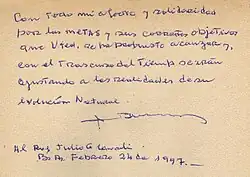 Con todo mi afecto y solidaridad
por las METAS y sus objetivos
que Usted, se ha propuesto alcanzar y,
con el Transcurso del Tiempo serán
ajustando a las realidades de su
evolución Natural.
Al Prof. Julio C.
Bs As. Febrero 24 de 1997.